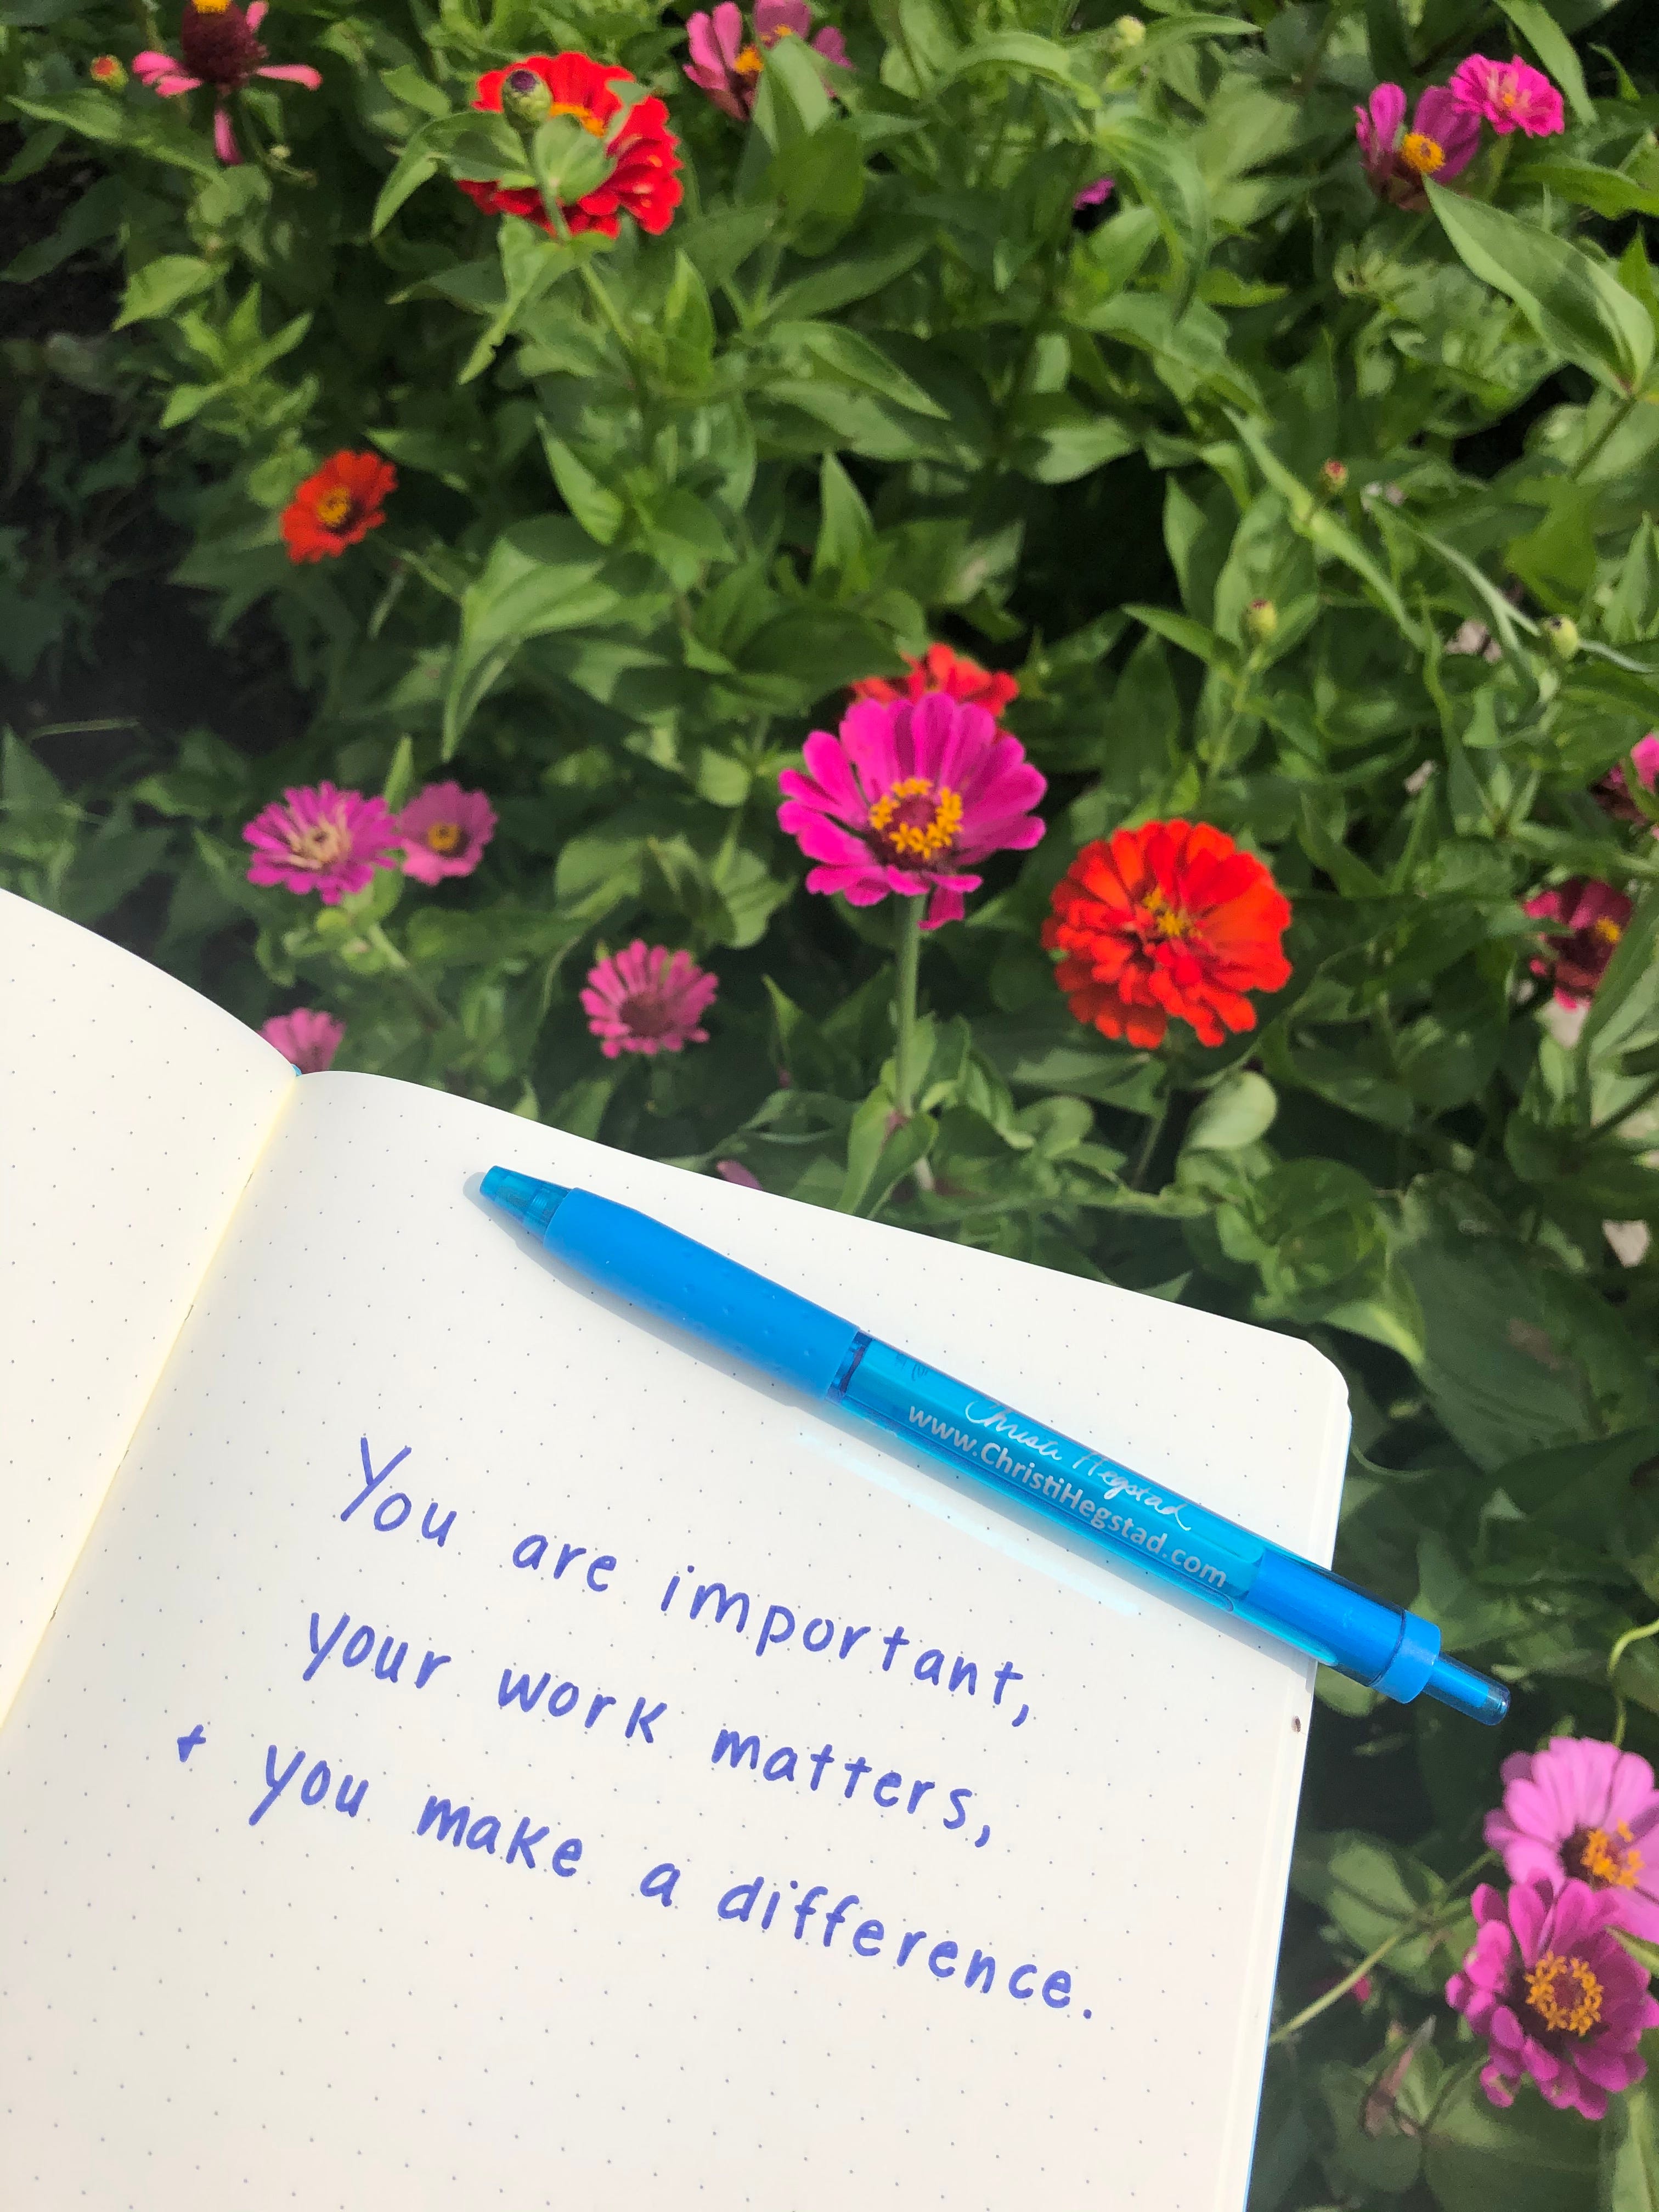 Christi Hegstad
www.ChristiHegstad.com
You are important,
your work matters,
+ you make a difference.